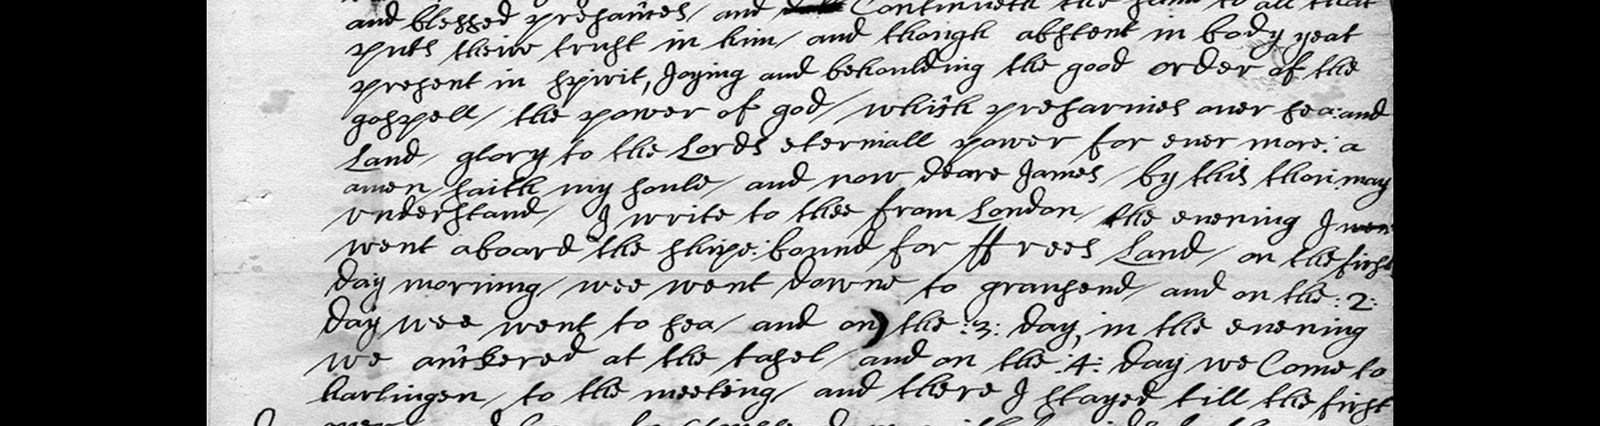 and blessed presances, and Continueth the same to all that
puts theire trust in him, and though absent in body yeat
present in spirit, Joying and behoulding the good order of the
gospell, the power of god, which presarves over sea: and
Land, glory to the Lords eternall power for ever more: a
amen saith my soule, and now deare James, by this thou may
understand, I write to thee from London, the evening I
went aboard the shipe: bound for ffrees Land, on the first
day morning, wee went downe to gravsend, and on the :2:
day wee went to sea, and on the :3: day, in the evening
we anckered at the tasel, and on the :4: day we Come to
harlingen, to the meeting, and there I stayed till the first